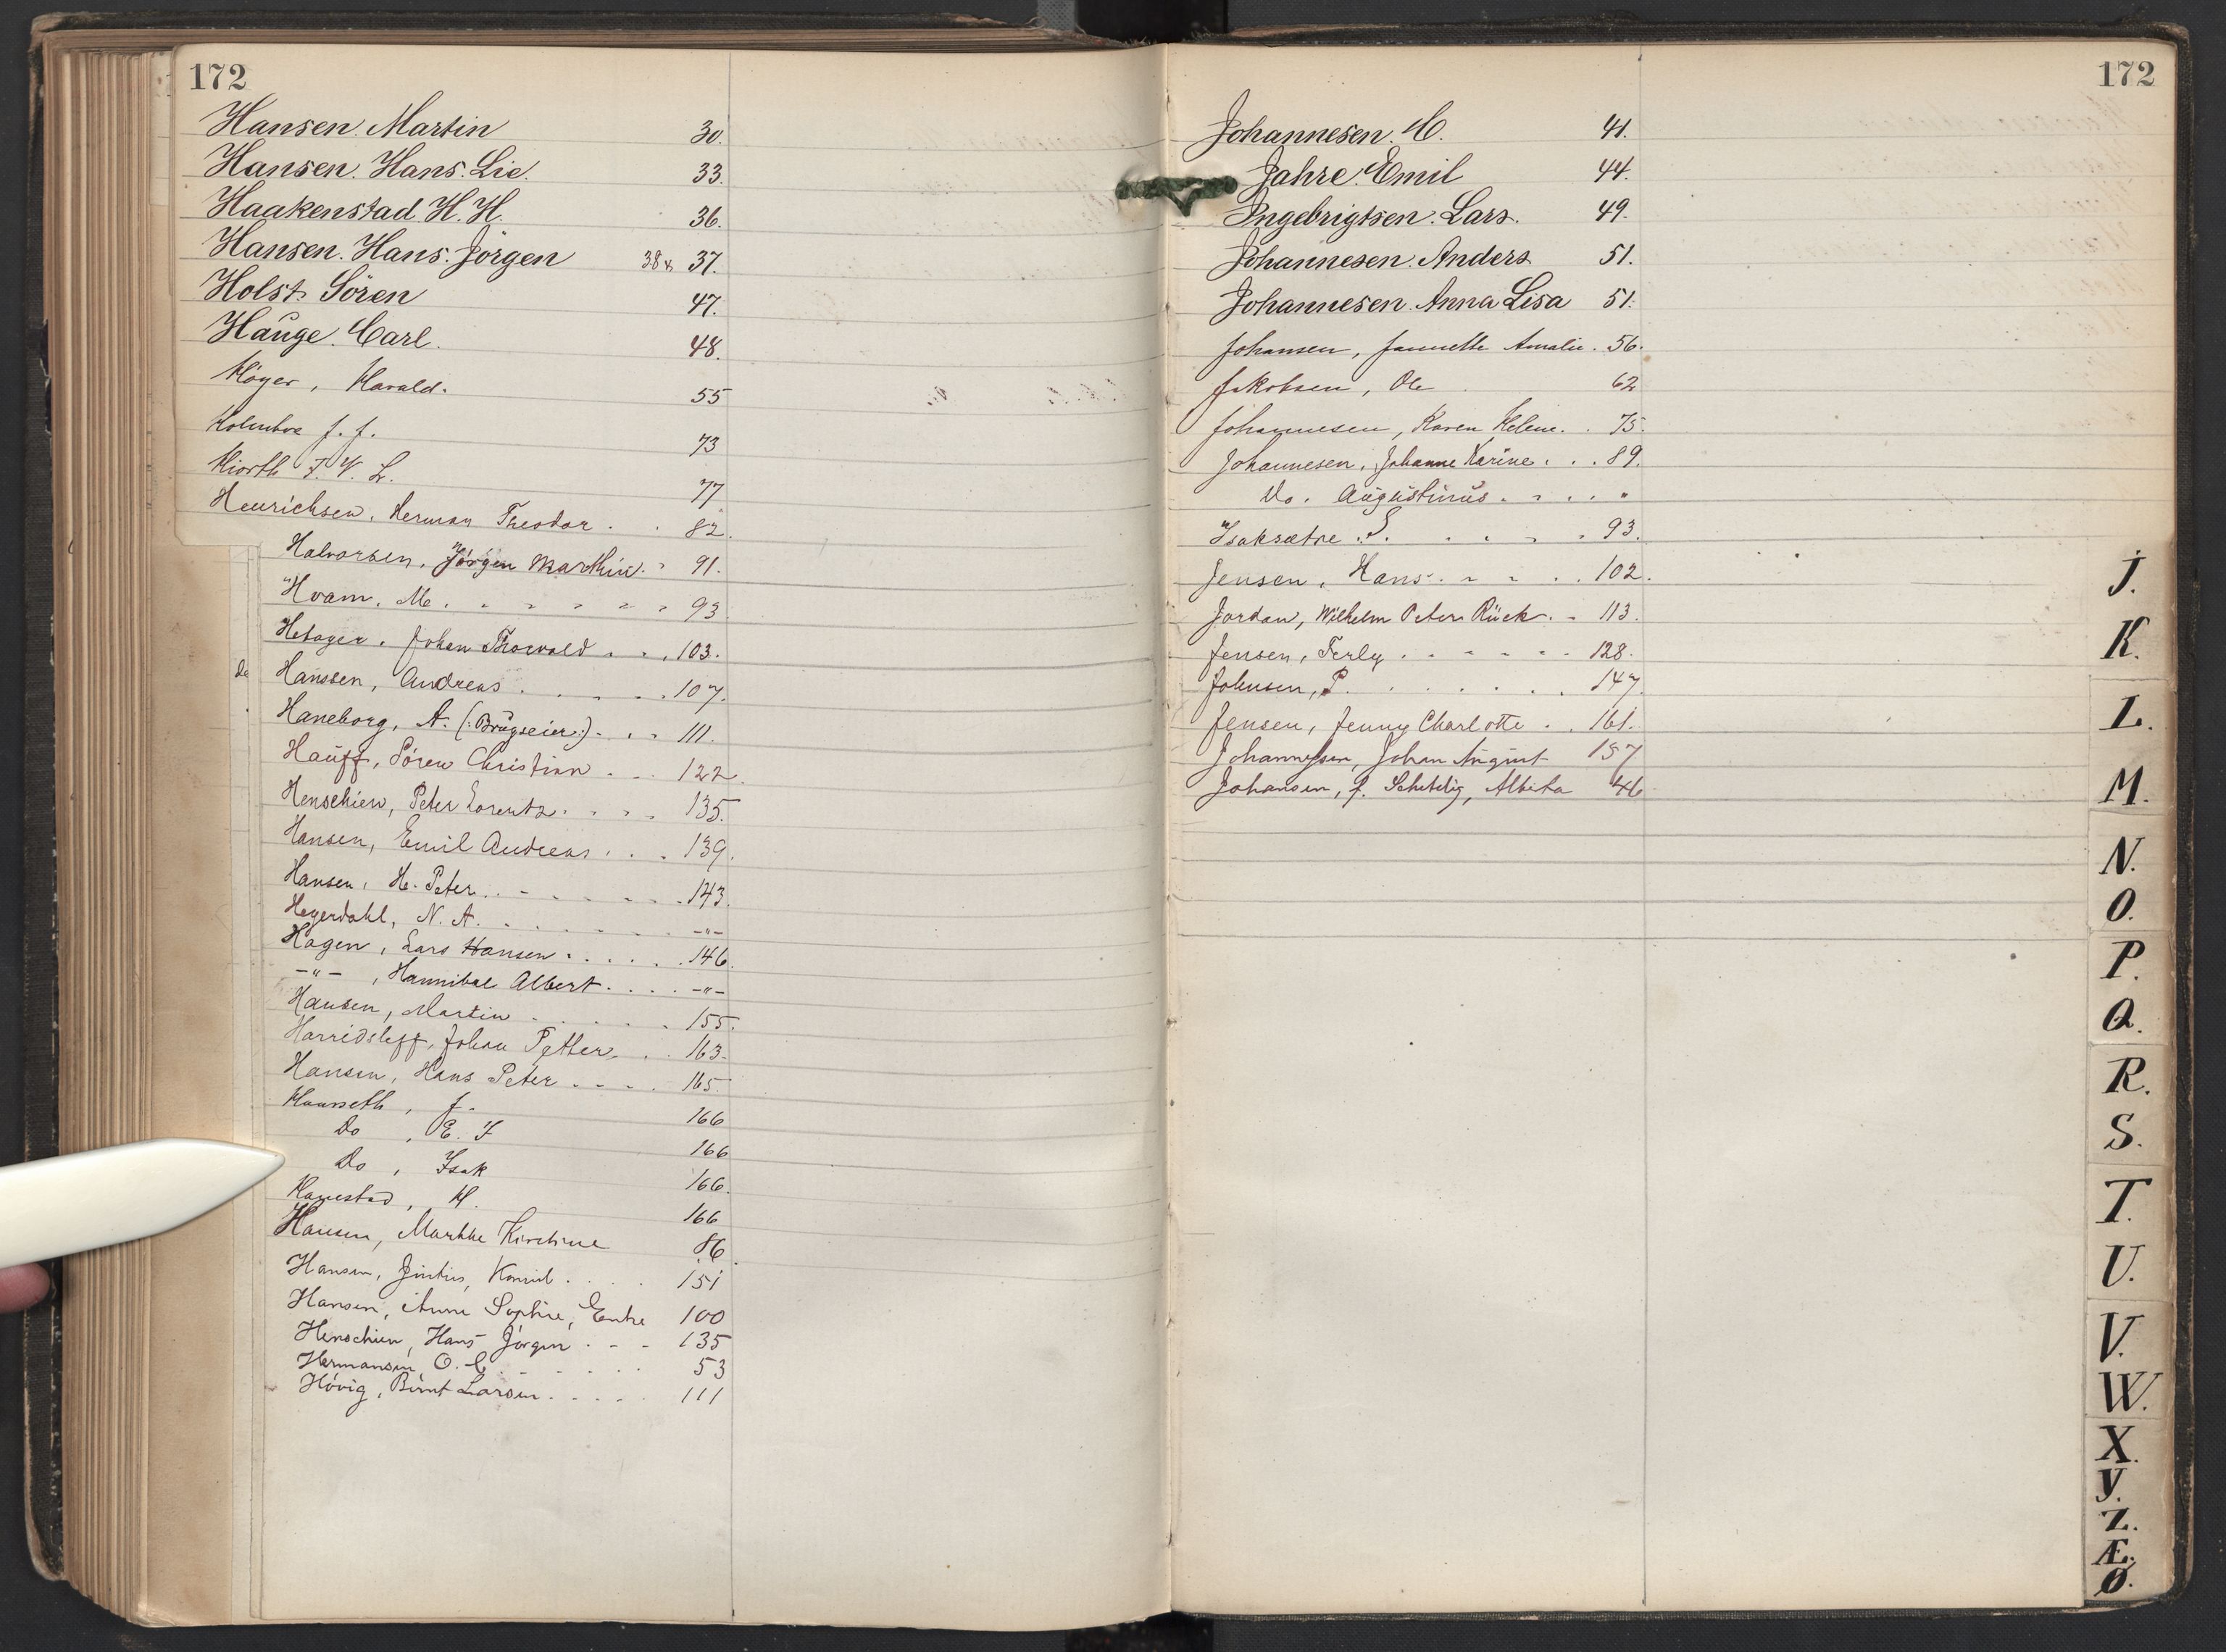 172
Hansen Martin 30.
Hansen. Hans. Lie. 33.
Haakenstad H. H. 36.
Hansen. Hans. Jörgen 38 & 37.
Holst. Sören 47.
Hauge. Carl. 48.
Höyer, Harald. 55
Holmboe J. J. 73
Hiorth F. V. L. 77
Henrichsen, Herman Theodor . . 82.
Halvorsen, Jörgen Marthin. . 91.
Hvam. M. . . . . . 93
Hetager, Johan Thorvald . . . 103.
Hanssen, Andreas . . . . . 107.
Haneborg, A. (: Brugseier :) . . . 111.
Hauff, Sören Christian . . . 122.
Henschien, Peter Lorentz . . . . 135.
Hansen, Emil Andreas . . . 139.
Hansen, H. Peter . . . . . . 143.
Heyerdahl, N. A. . . . . . . -"-
Hagen, Lars Hansen . . . . . 146.
-"- , Hannibal Albert . . . . -"-
Hansen, Martin . . . . . 155.
Harridsleff, Johan Petter . . 163.
Hansen, Hans Peter . . . . 165
Haurseth, J. 166
Do , E. F 166
Do , Isak 166.
Hanestad, H. 166
Hansen, Marthe Kirstine 86.
Hansen, Justus, Konsul . . . . 151
Hansen, Anne Sophie, Enke 100
Henschien, Hans Jörgen . . . 135
Hermansen O. C. . . . . . 53
Hövig, Bernt Larsen . . . . . 111
172
Johannesen. C. 41.
Jahre. Emil 44.
Ingebrigtsen. Lars. 49.
Johannesen. Anders 51.
Johannesen. Anna Lisa 51.
Johansen, Jannette Amalie . 56.
Jakobsen, Ole 62
Johannesen, Karen Helene. . 75.
Johannesen, Johanne Karine . . . 89.
Do. Augustinus . . . . . "
Isaksætre . S. . . . . . 93.
Jensen, Hans . . . . . 102.
Jordan, Wilhelm Peter Rück . . 113.
Jensen, Terly . . . . . . 128.
Johnsen, P. . . . . . . 147.
Jensen, Jenny Charlotte . . 161.
Johannessen, Johan August 157
Johansen, f. Schetelig, Alberta 46
J.
K.
L.
M.
N.
O.
P.
Q.
R.
S.
T.
U.
V.
W.
X.
Y.
Z.
Æ.
Ø.